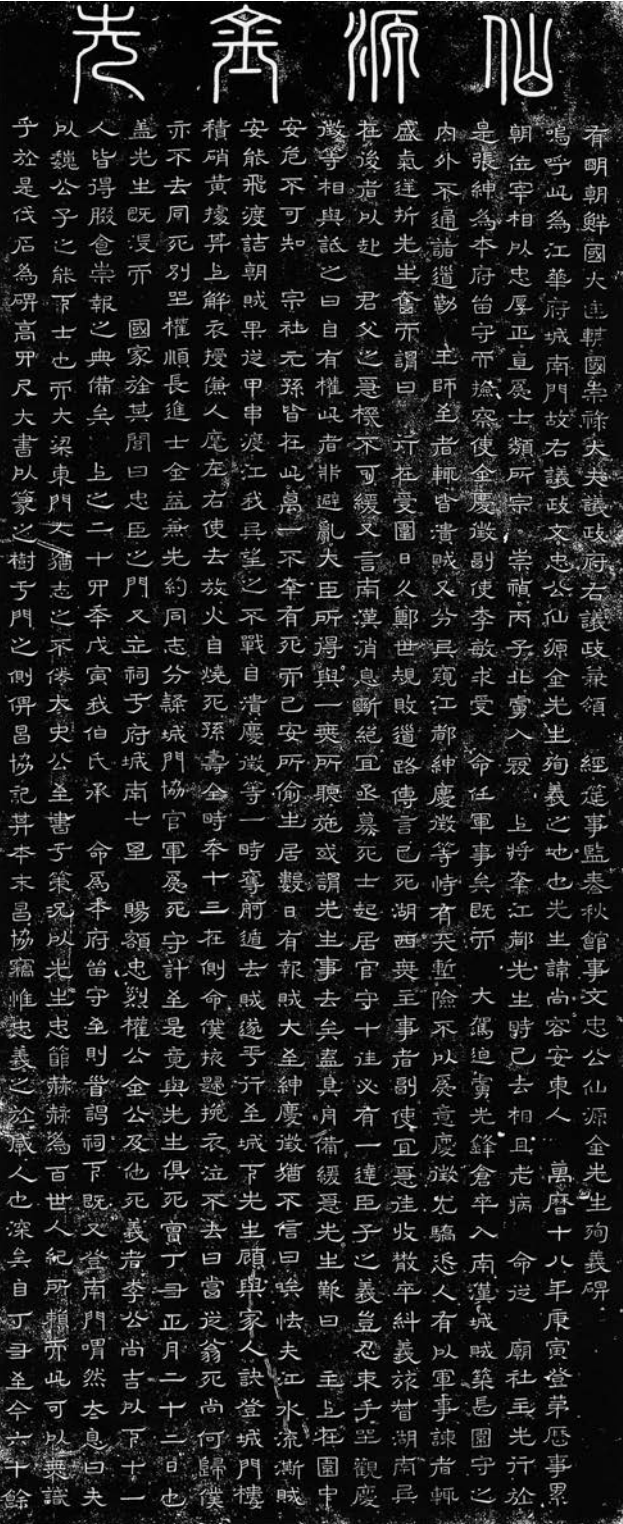 仙源金先
有明朝鮮國大匡輔國崇祿大夫議政府右議政兼領 經筵事監春秋館事文忠公仙源金先生殉義碑
嗚呼此為江華府城南門故右議政文忠公仙源金先生殉義之地也先生諱尚容安東人 萬曆十八年庚寅登第歷事累
朝位宰相以忠厚正直為士類所宗 崇禎丙子北虜入寇 上將幸江都先生時已去相且老病 命從 廟社主先行於
是張紳為本府留守而撿察使金慶徵副使李敏求受 命任軍事矣既而 大駕迫虜先鋒倉卒入南漢城賊築長圍守之
內外不通諸道勤 王師至者輒皆潰賊又分兵窺江都紳慶徵等恃有天塹險不以為意慶徵尤驕恣人有以軍事諫者輒
盛氣逆折先生奮而謂曰 行在受圍日久鄭世規敗道路傳言已死湖西無主事者副使宜亟往收散卒糾義旅督湖南兵
在後者以赴 君父之急機不可緩又言南漢消息斷絕宜亟募死士起居官守十往必有一達臣子之義豈忍束手坐觀慶
徵等相與詆之曰自有權此者非避亂大臣所得與一無所聽施或謂先生事去矣盍具舟備緩急先生歎曰 主上在圍中
安危不可知 宗社元孫皆在此萬一不幸有死而已安所偷生居數日有報賊大至紳慶徵猶不信曰唉怯夫江水流澌賊
安能飛渡詰朝賊果從甲串渡江我兵望之不戰自潰慶徵等一時奪舸遁去賊遂平行至城下先生顧與家人訣登城門樓
積硝黃據其上解衣授傔人麾左右使去放火自燒死孫壽全時年十三在側命僕掖避挽衣泣不去曰當從翁死尚何歸僕
亦不去同死別坐權順長進士金益兼先約同志分隷城門協官軍為死守計至是竟與先生俱死實丁丑正月二十二日也
盖先生既没而 國家旌其閭曰忠臣之門又立祠于府城南七里 賜額忠烈權公金公及他死義者李公尚吉以下十一
人皆得腏食崇報之典備矣 上之二十四年戊寅我伯氏承 命為本府留守至則首謁祠下既又登南門喟然太息曰夫
以魏公子之能下士也而大梁東門人猶志之不倦太史公至書于策況以先生忠節赫赫為百世人紀所賴而此可以無識
乎於是伐石為碑高四尺大書以篆之樹于門之側俾昌協記其本末昌協竊惟忠義之於感人也深矣自丁丑至今六十餘